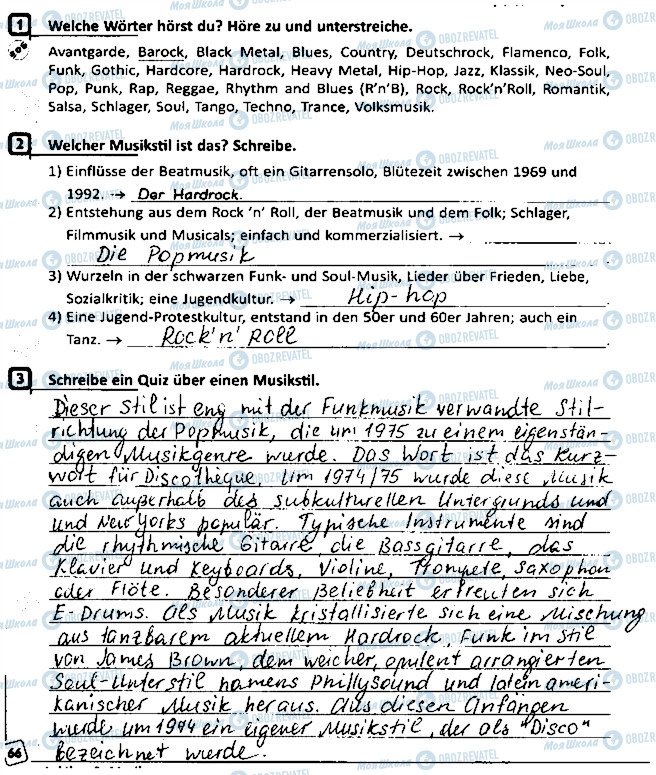 1 Welche Wörter hörst du? Höre zu und unterstreiche.
Avantgarde, Barock, Black Metal, Blues, Country, Deutschrock, Flamenco, Folk,
Funk, Gothic, Hardcore, Hardrock, Heavy Metal, Hip-Hop, Jazz, Klassik, Neo-Soul,
Pop, Punk, Rap, Reggae, Rhythm and Blues (R'n'B), Rock, Rock'n'Roll, Romantik,
Salsa, Schlager, Soul, Tango, Techno, Trance, Volksmusik.
2 Welcher Musikstil ist das? Schreibe.
1) Einflüsse der Beatmusik, oft ein Gitarrensolo, Blütezeit zwischen 1969 und
1992. → Der Hardrock.
2) Entstehung aus dem Rock 'n' Roll, der Beatmusik und dem Folk; Schlager,
Filmmusik und Musicals; einfach und kommerzialisiert. →
Die Popmusik
3) Wurzeln in der schwarzen Funk- und Soul-Musik, Lieder über Frieden, Liebe,
Sozialkritik; eine Jugendkultur. → Hip-hop
4) Eine Jugend-Protestkultur, entstand in den 50er und 60er Jahren; auch ein
Tanz. → Rock'n' Roll
3 Schreibe ein Quiz über einen Musikstil.
Dieser Stil ist eng mit der Funkmusik verwandte Stil-
richtung der Popmusik, die um 1975 zu einem eigenstän-
digen Musikgenre wurde. Das Wort ist das Kurz-
wort für Discothèque. Um 1974/75 wurde diese Musik
auch außerhalb des subkulturellen Untergrunds und
und New Yorks populär. Typische Instrumente sind
die rhythmische Gitarre, die Bassgitarre, das
Klavier und Keyboards, Violine, Trompete, Saxophon
oder Flöte. Besonderer Beliebheit erfreuten sich
E-Drums. Als Musik kristallisierte sich eine Mischung
aus tanzbarem aktuellem Hardrock, Funk im Stil
von James Brown, dem weicher, opulent arrangierten
Soul-Unterstil namens Phillysound und lateinameri-
kanischer Musik heraus. Aus diesen Anfängen
wurde um 1974 ein eigener Musikstil, der als "Disco"
bezeichnet wurde.
66
Моя Школа OBOZREVATEL